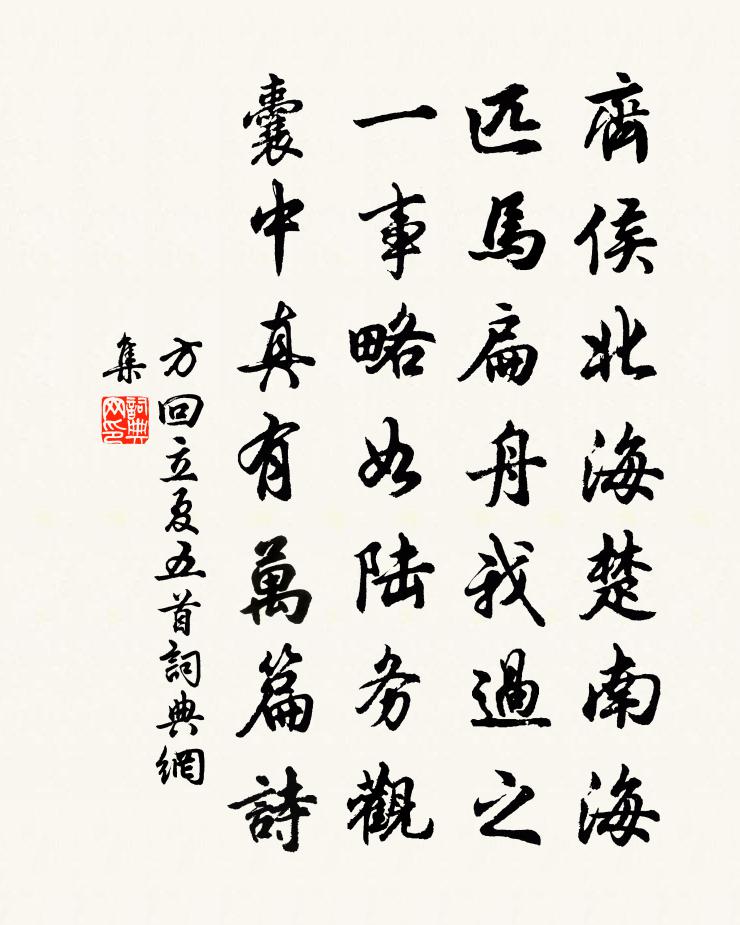 齊侯北海楚南海
匹馬扁舟我過之
一事略如陆务觀
囊中真有萬篇詩
方回立夏五首詞典網
集
詞典
网印